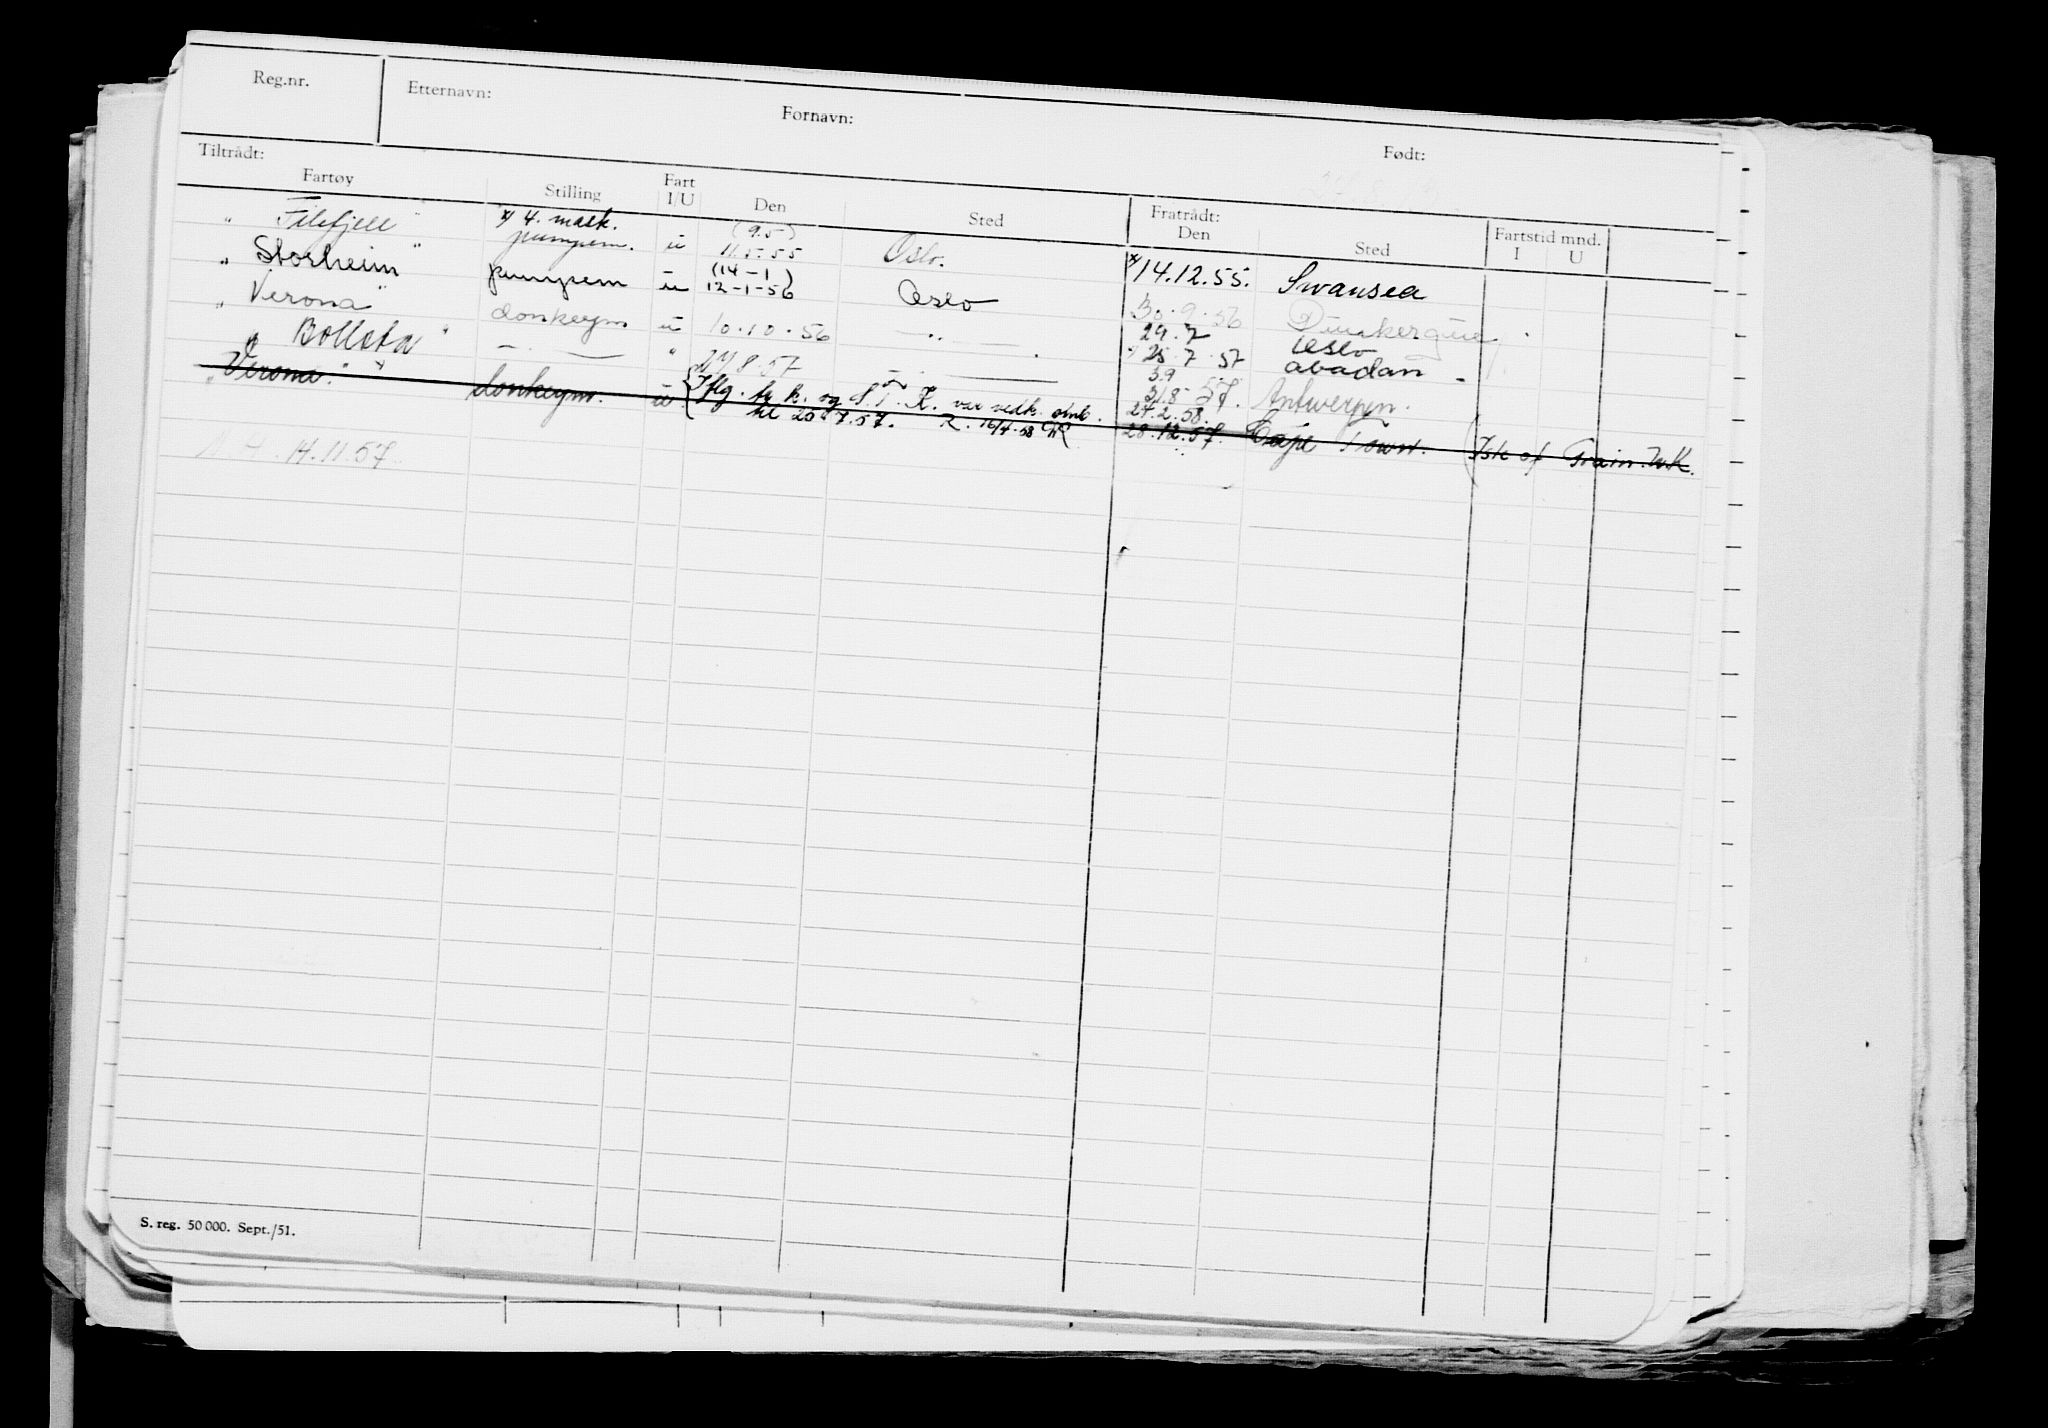 Reg.nr. Etternavn: Fornavn: Født:
Tiltrådt: Fratrådt:
Fartøy Stilling Fart I/U Den Sted Den Sted Fartstid mnd. I U
" Filefjell " x/ 4. mask. pumpem. u (9.5) 11.5-55 Oslo. x/14.12.55. Swansea
" Storheim " pumpem u (14-1) 12-1-56 Oslo 30.9.56 Dunkerque
" Verona " donkeym u 10.10.56 —"— 29.7 25.7.57 Oslo abadan
" Bolleta " — — " 8.57 — 3.9 31.8-57. Antwerpen.
" Verona." donkeym. u. Iflg. og var vedk. omb. 27.2.58.
til 20.7.57. R. 16/4-58 28.12.57. Cape Town. (Isle of Grain. U.K.
14.11.57.
S. reg. 50 000. Sept./51.